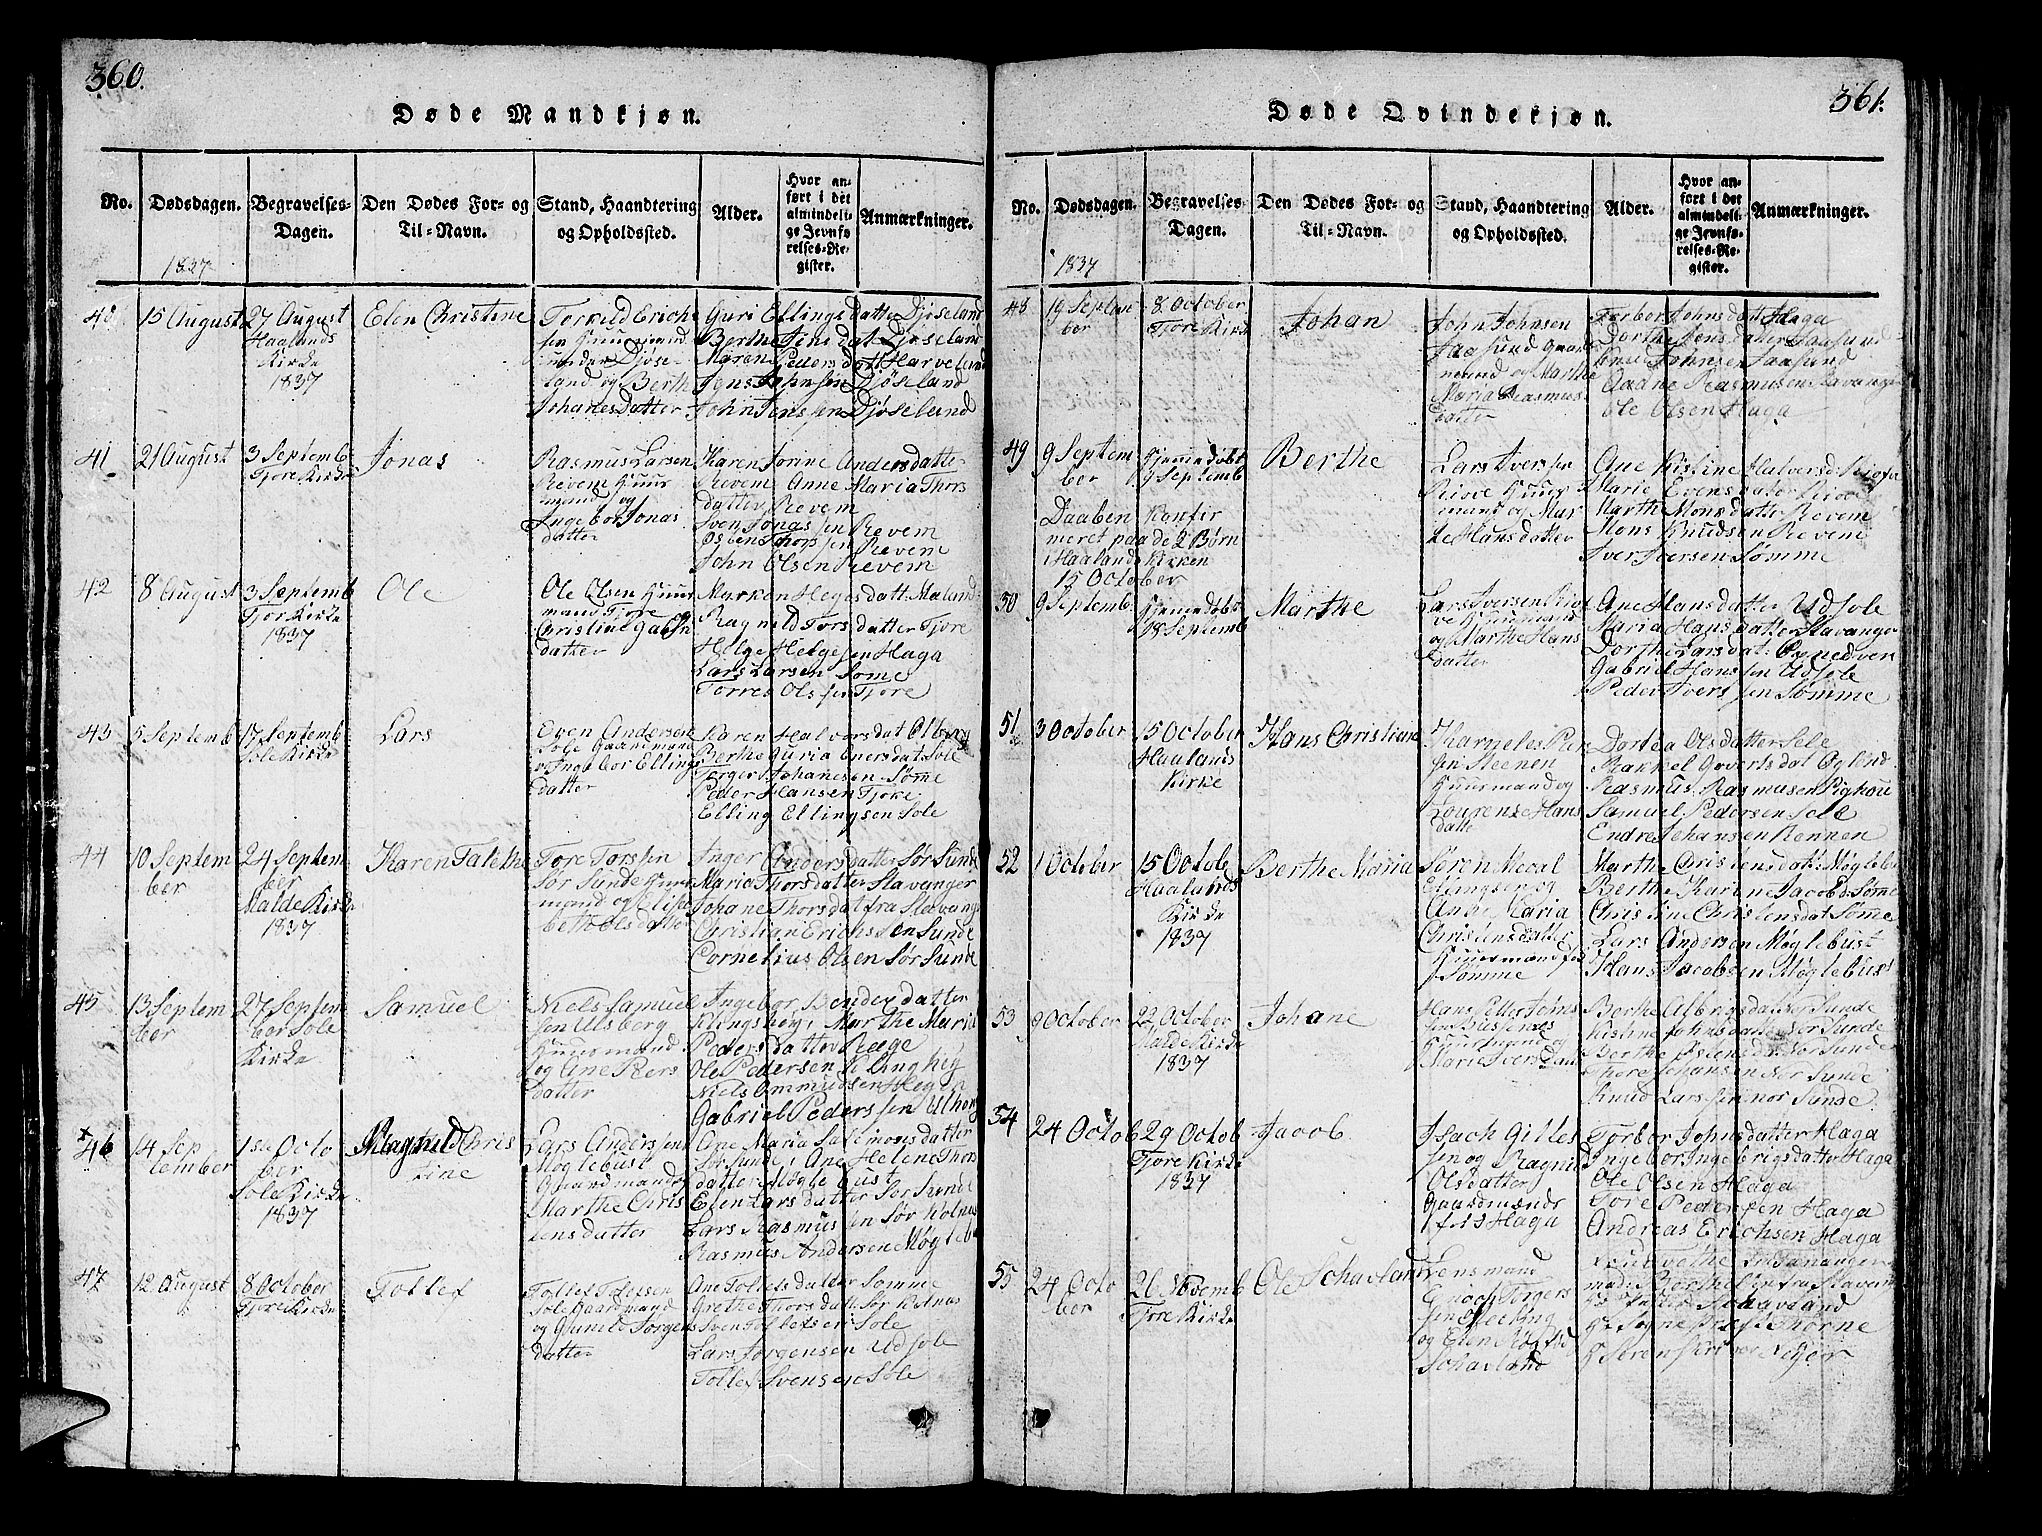 360.
Døde Mandkjøn.
No.
Dødsdagen.
Begravelses-
Dagen.
Den Dødes For- og
Til-Navn.
Stand, Haandtering
og Opholdssted.
Alder.
Hvor an-
ført i det
almindeli-
ge Jevnfø-
relses-Re-
gister.
Anmærkninger.
1837
40
15 August
27 August
Haalands
Kirke
1837
Elen Christine
Torkild Erich
sen Huusmand
under Djøse-
land og Berthe
Johanes Datter
Guri Ellings datter Djøseland
Berthe Jens dat Djøseland
Maren Peders datt Harveland
Jens Johnsen Djøseland
John Jenssen Djøseland
41
21 August
3 Septemb
Tjore Kirke
Jonas
Rasmus Larsen
Revem Huus
mand og
Ingebor Jonas
datter
Karen Jorine Andersdatter
Revem Anne Maria Thors
datter Revem
Sven Jonassen Revem
Osten Thorssen Revem
John Olsen Revem
42
8 August
3 Septemb
Tjor Kirke
1837
Ole
Ole Olsen Huus
mand Tjore
Christine
datter
Markon Heges datt: Maland
Ragnild Tors datter Tjore
Helge Helgesen Haga
Lars Larsen Sømme
Torres Olssen Tjore
43
5 Septemb
17 Septemb
Sole Kirke
Lars
Even Andersen
Sole Gaardmand
og Ingebor Ellings
datter
Karen Halvorsdat Olberg
Berthe Guria Enersdat Sole
Jørger Johanesen Sømme
Peder Hansen Tjore
Elling Ellingsen Sole
44
10 Septem
ber
24 Septem
ber
Malde Kirke
1837
Karen Talethe
Tore Torsen
Sør Sunde Huus
mand og Elisa
beth Olsdatter
Inger Anders datter Sør Sunde
Maria Thorsdatter Stavanger
Johane Thorsdat fra Stavanger
Christian Erichssen Sunde
Cornelius Olsen Sør Sunde
45
13 Septem
ber
27 Septem
ber Sole
Kirke
Samuel
Niels Samuel
sen Ulsberg
Huusmand
og Ane Pers
datter
Ingebor Bendes datter
Klingshøy, Marthe Maria
Peders datter Ræge
Ole Pedersen Klinghøy
Niels Ommundsen Hegen
Gabriel Pederssen Ulhoug
46
14 Sep
tember
1ste Octo
ber
Sole Kirke
1837
Magnild Chris
tine
Lars Anderssen
Møglebust
Gaardmand
Marthe Chris
tensdatter
Ane Maria Salemonsdatter
Sør Sunde Ane Helene Thors
datter Møglebust
Elen Lars datter Sør Sunde
Lars Rasmussen Sør Kolnes
Rasmus Andersen Møgleb
47
12 August
8 October
Tjore Kirke
Tollef
Tollef Tollefsen
Sole Gaardmand
og Gunild Jørgens
datter
Ane Tollefs datter Sømme
Grethe Thors datte Sør Kolnes
Sven Tollefsen Sole
Lars Jørgensen Udsole
Tollef Svensen Sole
361.
Døde Qvindekjøn.
No.
Dødsdagen.
Begravelses-
Dagen.
Den Dødes For- og
Til-Navn.
Stand, Haandtering
og Opholdssted.
Alder.
Hvor an-
ført i det
almindeli-
ge Jevnfø-
relses-Re-
gister.
Anmærkninger.
1837
48
19 Septem
ber
8 October
Tjore Kirke
Johan
John Johnsen
Jaasund Gaard
mand og Marthe
Maria Rasmus
datter
Torbor Johns dat Haga
Dorthe Jens datter Jaasund
Johnsen Jaasund
Aadne Rasmusen Stavanger
Ole Olsen Haga
49
9 Septem
ber
Hjemmedøbt
9 Septemb
Daaben Konfir
meret paa de 2 Børn
i Haalands Kirken
15 October
Berthe
Lars Iversen
Risve Huus
mand og Mar
te Hans datter
Ane Kistine Halversd:
Marie Evens datter Risve
Marthe Mons datter Revem
Mons Knudsen Revem
Iver Iversen Sømme
50
9 Septemb
Hjemmedøbt
18 Septemb
Marthe
Lars Iversen Ris
ve Huusmand
og Marthe Hans
datter
Ane Hans datter Udsole
Maria Hans datter Stavanger
Dorthe Lars dat:
Gabriel Hanssen Udsole
Peder Iverssen Sømme
51
3 October
15 October
Haalands
Kirke
Hans Christian
Karneles Peer
sen Steenen
Huusmand og
Lourense Hans
datte
Dortea Olsdatter Sele
Rakkel Goverts dat Ogland
Rasmus Rasmusen Righou
Samuel Pedersen Sele
Endre Johansen Rennen
52
1 October
15 Octobe
Haalands
Kirke
1837
Berthe Maria
Søren Meval
Elingsen og
Anne Maria
Christensdatter
Huusmand
Sømme
Marthe Christensdat: Møglebu
Berthe Karine Jacobsd Sømme
Christine Christensdat Sømme
Lars Andersen Møglebust
Hans Jacobsen Møglebust
53
8 October
22 October
Malde Kirke
1837
Johane
Hans Petter Johns
sen
Huusmand og
Marie Iversdatt
Berthe Albrigsdat Nor Sunde
Kistine Johnsdatter Nor Sunde
Berthe Nor Sunde
Thore Johansen Nor Sunde
Knud Larssen Nor Sunde
54
24 Octob
29 Octob
Tjore Kirke
1837
Jacob
Isach Gilles
sen og Ragnild
Olsdatter
Gaardmænds
f.s. Haga
Torbor Johnsdatter Haga
Ingebor Ingebrigsdatter Haga
Ole Olsen Haga
Tore Pedersen Haga
Andreas Erichsen Haga
55
24 Octo
ber
26 Novemb
Tjore Kirke
Ole Schavland
Lensmand
Enoch Jørgers
sen Meeling
og Elen
Schavland
fra Stavanger
Schavland
Thorne